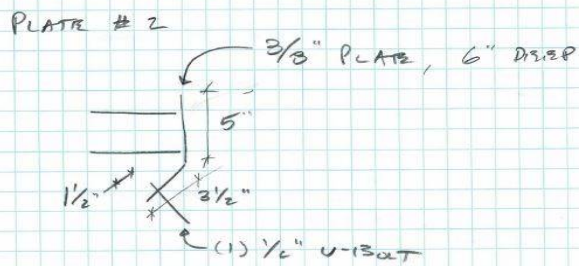 PLATE # 2
3/8" PLATE, 6" DEEP
5"
1 1/2"
3 1/2"
(1) 1/2" U-BOLT